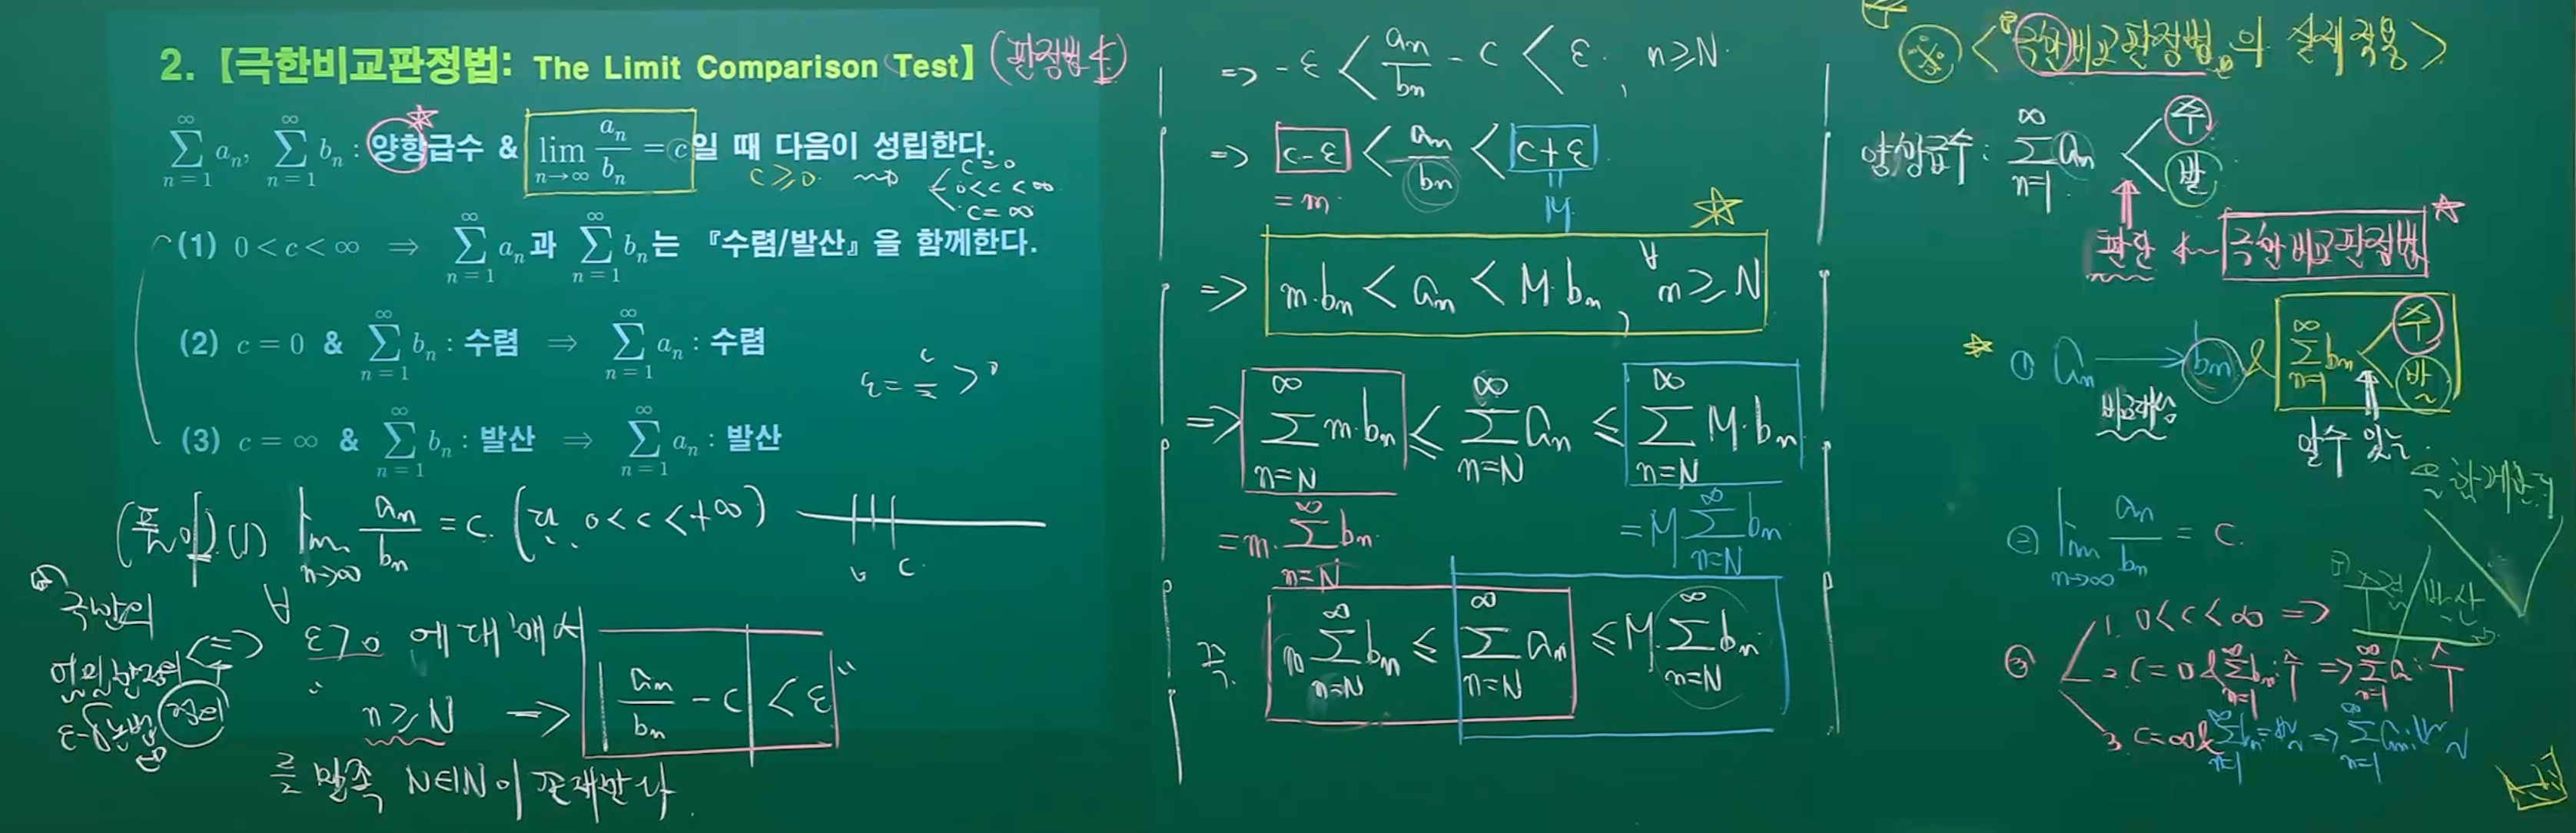 2. 【극한비교판정법: The Limit Comparison Test】 (판정법 4)
∑_{n=1}^{∞} a_n, ∑_{n=1}^{∞} b_n : 양항급수 & lim_{n→∞} a_n/b_n = c 일 때 다음이 성립한다.
c ≥ 0 ⇝ c=0
0<c<∞
c=∞
(1) 0 < c < ∞ ⇒ ∑_{n=1}^{∞} a_n과 ∑_{n=1}^{∞} b_n는 『수렴/발산』을 함께한다.
(2) c = 0 & ∑_{n=1}^{∞} b_n : 수렴 ⇒ ∑_{n=1}^{∞} a_n : 수렴
ε = c/2 > 0
(3) c = ∞ & ∑_{n=1}^{∞} b_n : 발산 ⇒ ∑_{n=1}^{∞} a_n : 발산
(풀이) (1) lim_{n→∞} a_n/b_n = c. (단, 0<c<+∞)
0 c
극한의
엄밀한정의
ε-δ논법
정의
⇔ ∀ε>0 에 대해서
"n ≥ N ⇒ |a_n/b_n - c| < ε"
를 만족 N∈ℕ이 존재한다.
⇒ -ε < a_n/b_n - c < ε, n≥N
⇒ c-ε < a_n/b_n < c+ε
= m = M
⇒ m·b_n < a_n < M·b_n, ∀n ≥ N
⇒ ∑_{n=N}^{∞} m·b_n ≤ ∑_{n=N}^{∞} a_n ≤ ∑_{n=N}^{∞} M·b_n
= m·∑_{n=N}^{∞} b_n = M∑_{n=N}^{∞} b_n
즉. m∑_{n=N}^{∞} b_n ≤ ∑_{n=N}^{∞} a_n ≤ M∑_{n=N}^{∞} b_n
※ <『극한비교판정법』의 실제적용>
양항급수 : ∑_{n=1}^{∞} a_n < 수
발
↑
판단 ← 극한비교판정법
① a_n → b_n & ∑_{n=1}^{∞} b_n < 수
발
비교대상 알수 있는
② lim_{n→∞} a_n/b_n = c.
③ 1. 0<c<∞ ⇒ 수렴/발산
2. c=0 & ∑_{n=1}^{∞} b_n : 수 ⇒ ∑_{n=1}^{∞} a_n : 수
3. c=∞ & ∑_{n=1}^{∞} b_n = 발 ⇒ ∑_{n=1}^{∞} a_n : 발